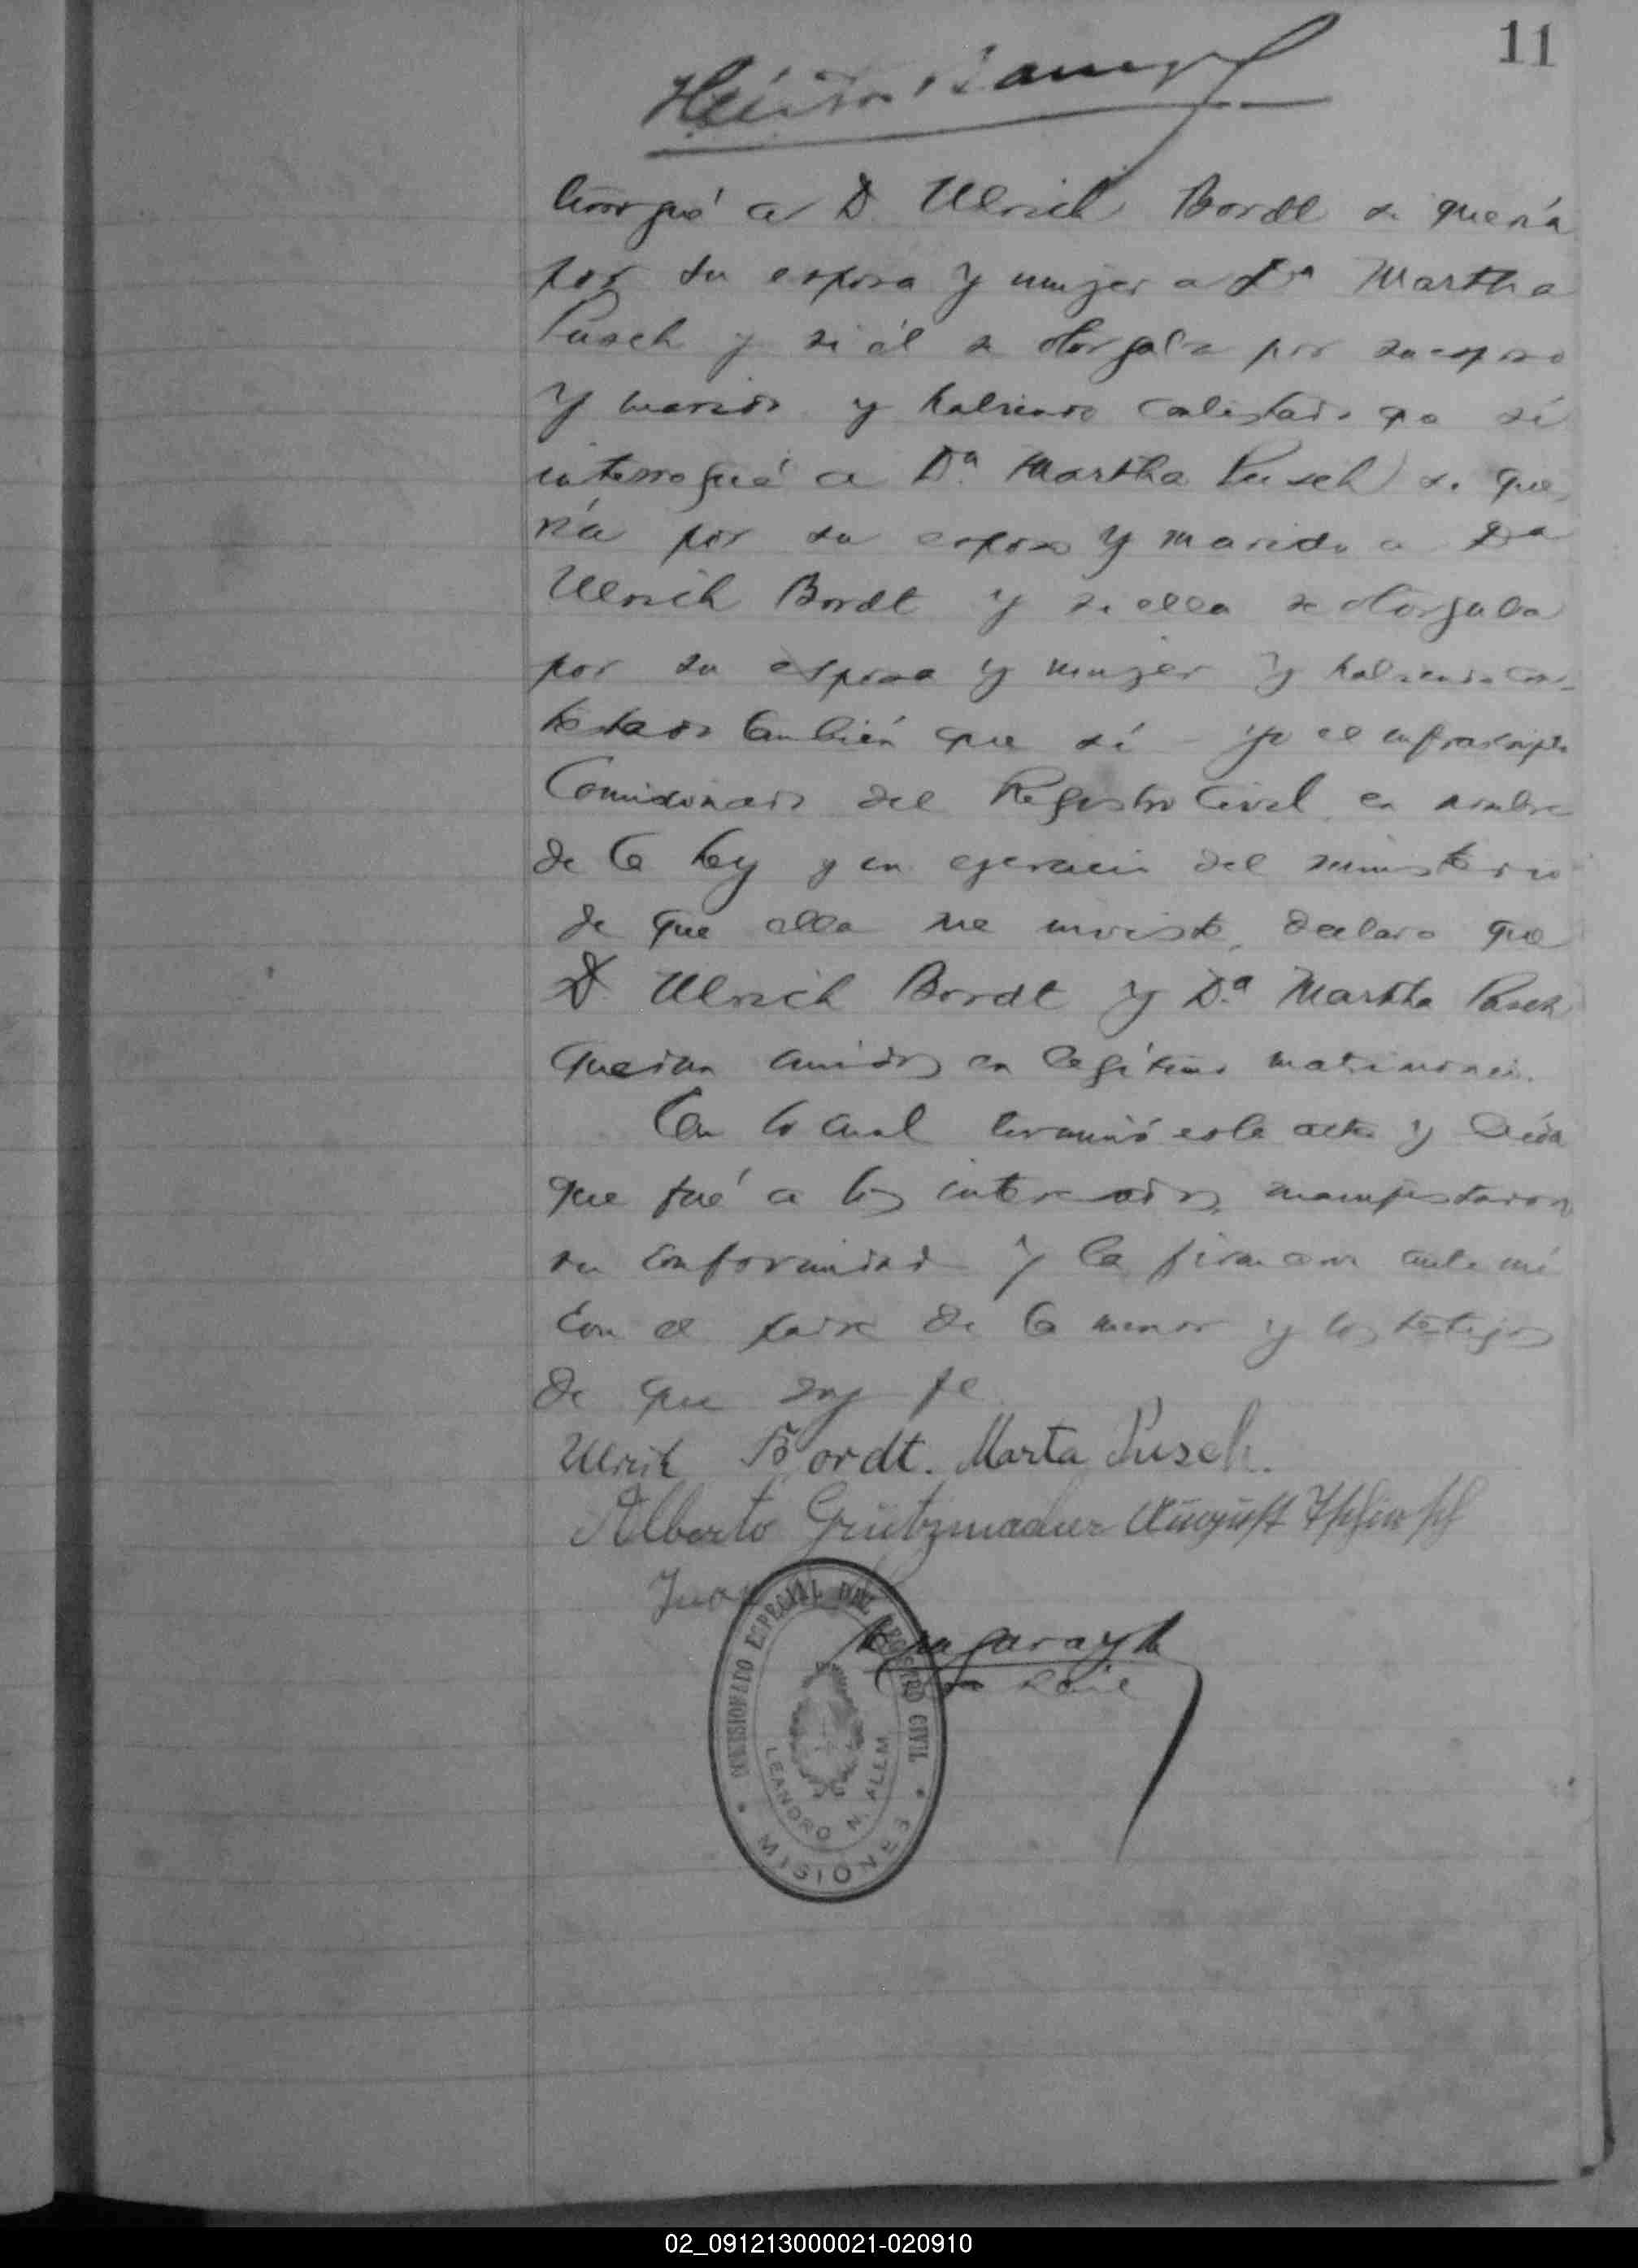 11
Héctor
terrogué a D. Ulrich Bordt si quería
por su esposa y mujer a Dª Martha
Pusch y si él se otorgaba por su esposo
y marido y habiendo contestado que sí
interrogué a Dª. Martha Pusch si que
ría por su esposo y marido a Dª
Ulrich Bordt y si ella se otorgaba
por su esposa y mujer y habiendo con-
testado también que sí - yo el infrascripto
Comisionado del Registro Civil, en nombre
de la ley y en ejercicio del ministerio
de que ella me inviste, declaro que
D. Ulrich Bordt y D.ª Martha Pusch
quedan unidos en legítimo matrimonio.
Con lo cual terminó este acta y leída
que fué a los interesados, manifestaron
su conformidad y la firman ante mí
con el padre de la menor y los testigos
de que doy fe
Ulrich Bordt. Marta Pusch.
Alberto Grützmacher August
Juan
COMISIONADO ESPECIAL DEL REGISTRO CIVIL
LEANDRO N. ALEM
MISIONES
02_091213000021-020910